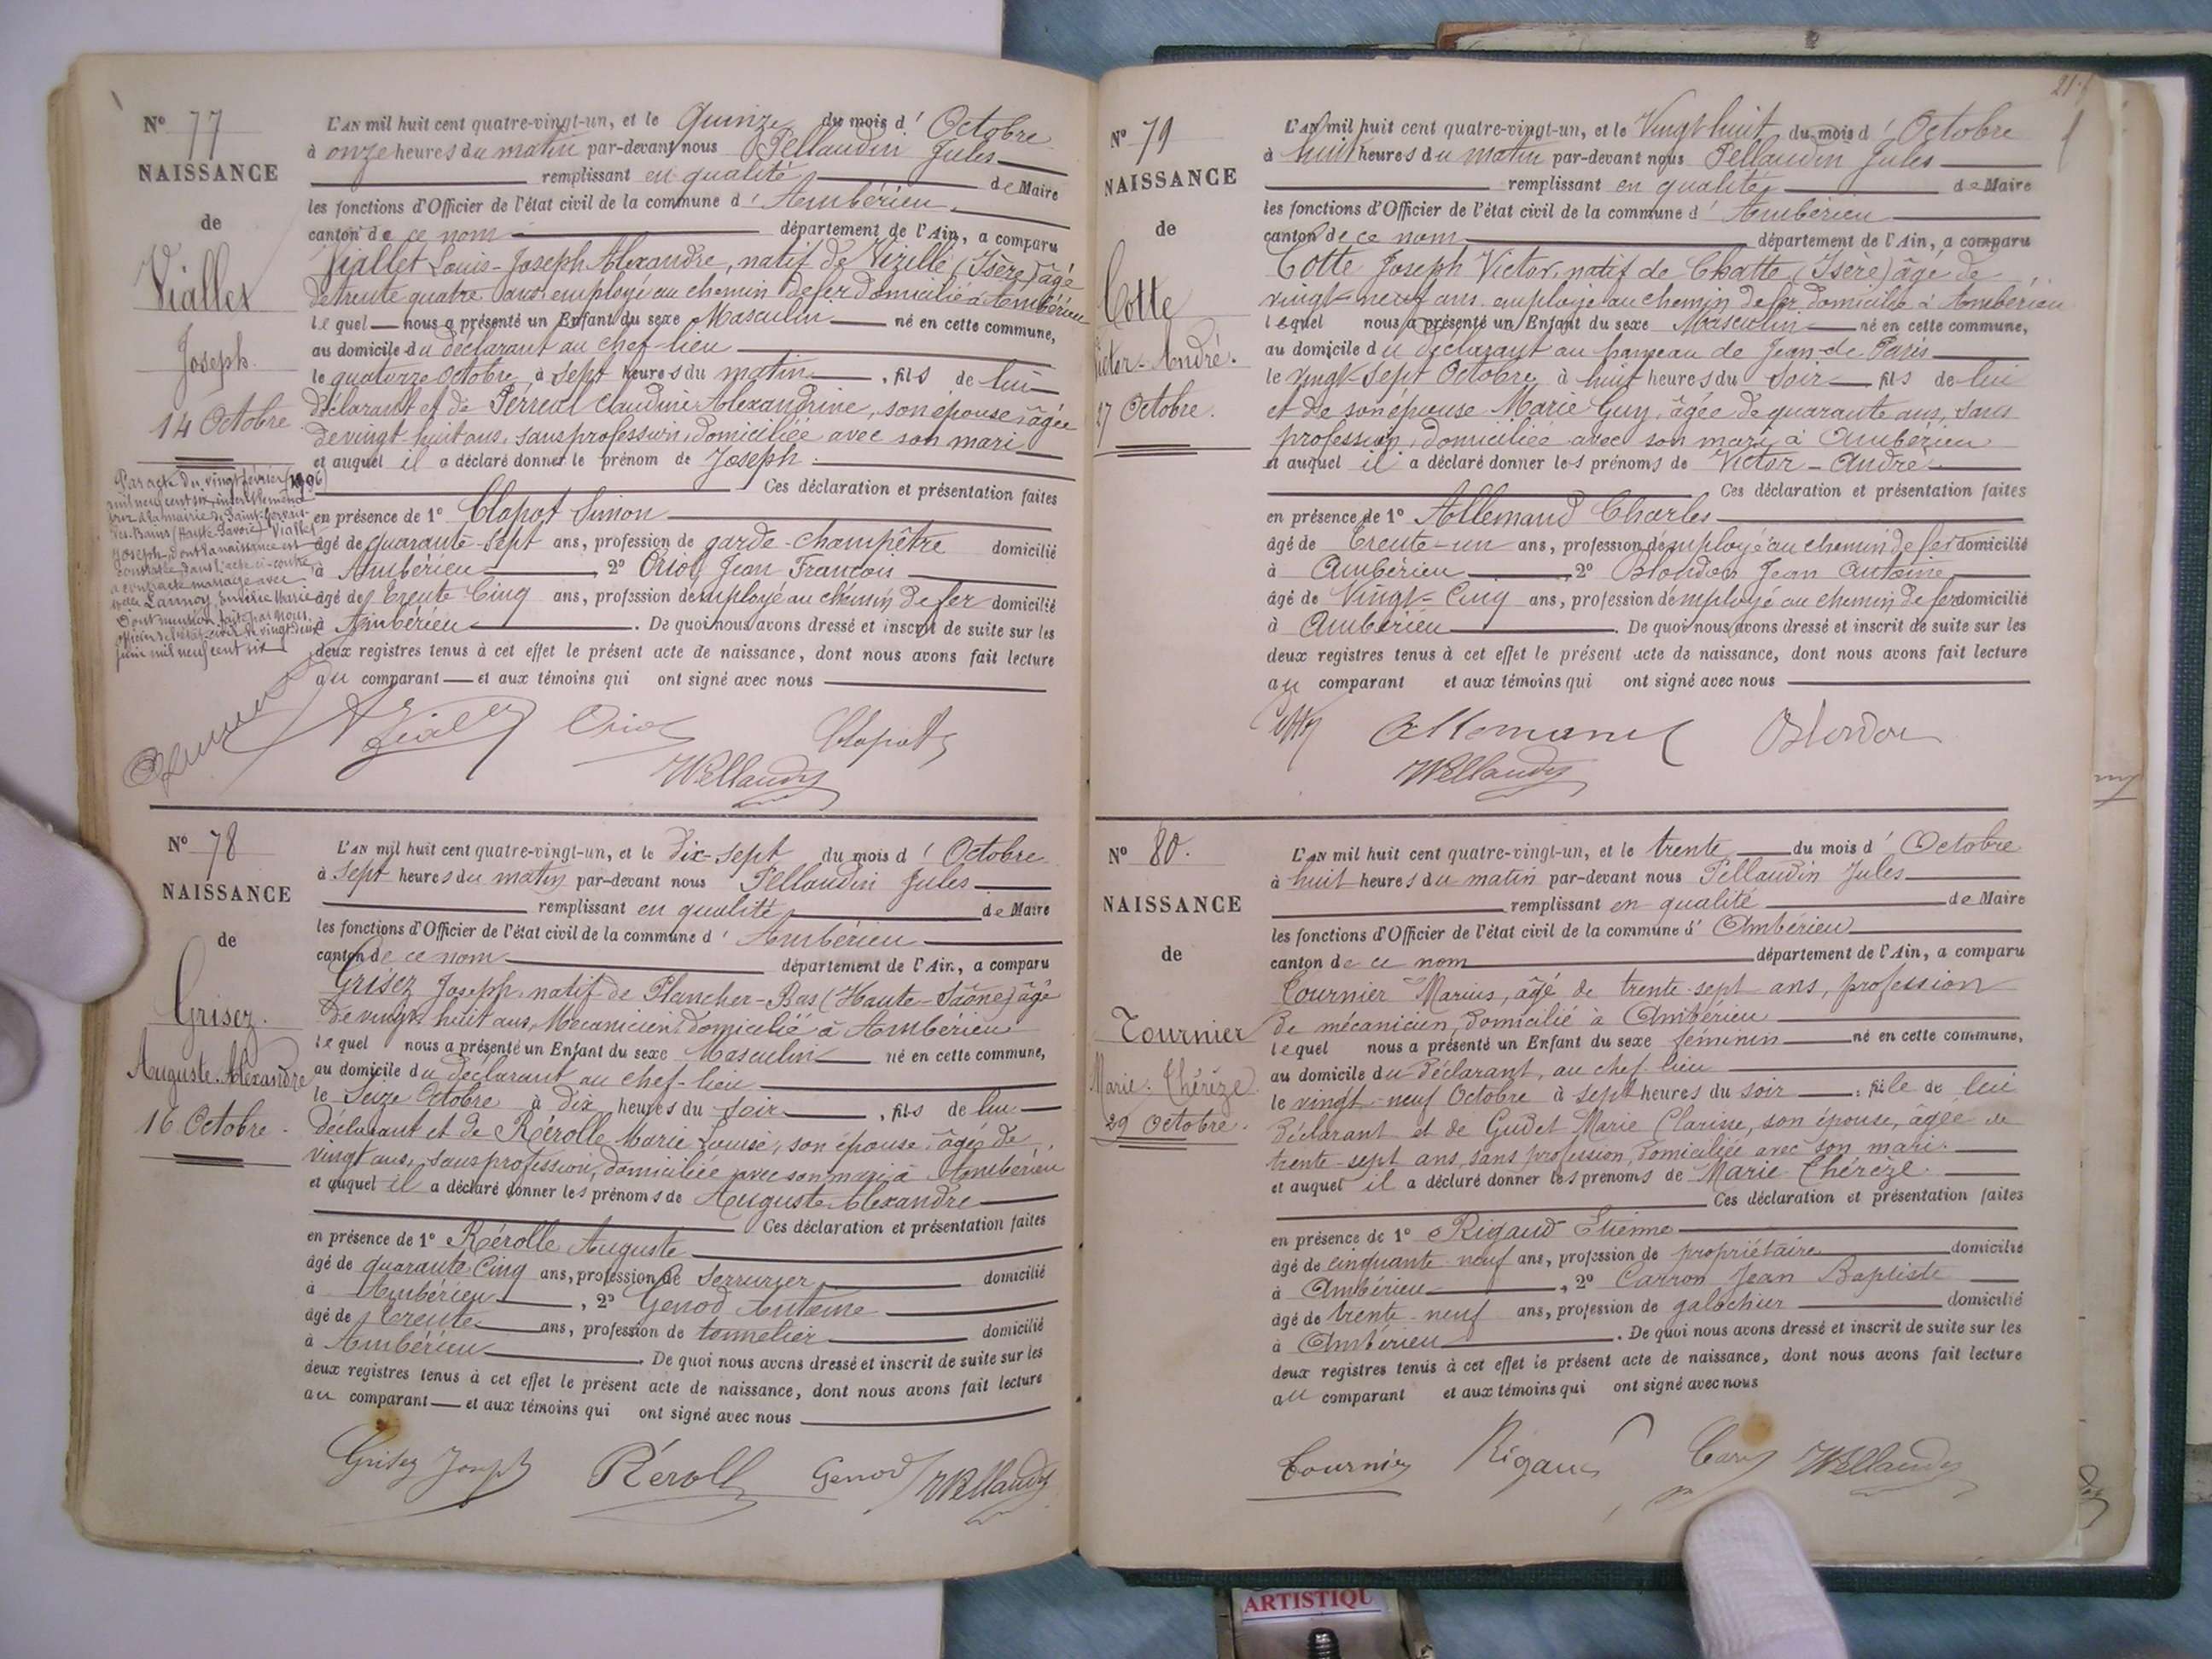 N° 77
NAISSANCE
de
Viallet
Joseph.
14 Octobre
Par acte du vingt février (1906)
mil neuf cent six, inscrit
à la mairie de Saint-Gervais-
les-Bains (Haute-Savoie) Viallet
Joseph, dont la naissance est
constatée dans l'acte ci-contre,
a contracté mariage avec
Lannoy Marie
Dont mention faite par nous,
officier de l'état-civil le vingt-deux
juin mil neuf cent six
L'AN mil huit cent quatre-vingt-un, et le Quinze du mois d' Octobre
à onze heures du matin par-devant nous Pellaudin Jules
remplissant en qualité de Maire
les fonctions d'Officier de l'état civil de la commune d' Ambérieu
canton de ce nom département de l'Ain, a comparu
Viallet Louis-Joseph Alexandre, natif de Vizille (Isère) âgé
de trente quatre ans employé au chemin de fer domicilié à Ambérieu
lequel nous a présenté un Enfant du sexe Masculin né en cette commune,
au domicile du déclarant au chef-lieu
le quatorze Octobre à sept heures du matin, fils de lui
déclarant et de Perreal Claudine Alexandrine, son épouse, âgée
de vingt huit ans, sans profession, domiciliée avec son mari
et auquel il a déclaré donner le prénom de Joseph.
Ces déclaration et présentation faites
en présence de 1° Clapot Simon
âgé de quarante-sept ans, profession de garde-champêtre domicilié
à Ambérieu, 2° Oriol Jean François
âgé de trente cinq ans, profession d'employé au chemin de fer domicilié
à Ambérieu. De quoi nous avons dressé et inscrit de suite sur les
deux registres tenus à cet effet le présent acte de naissance, dont nous avons fait lecture
au comparant et aux témoins qui ont signé avec nous
Oriol Clapot
Pellaudin
N° 78
NAISSANCE
de
Grisez.
Auguste Alexandre
16 Octobre.
L'AN mil huit cent quatre-vingt-un, et le dix-sept du mois d' Octobre
à sept heures du matin par-devant nous Pellaudin Jules
remplissant en qualité de Maire
les fonctions d'Officier de l'état civil de la commune d' Ambérieu
canton de ce nom département de l'Ain, a comparu
Grisez Joseph, natif de Plancher-Bas (Haute-Saône) âgé
de vingt huit ans, Mécanicien, domicilié à Ambérieu
lequel nous a présenté un Enfant du sexe Masculin né en cette commune,
au domicile du déclarant au chef-lieu
le Seize Octobre à dix heures du soir, fils de lui
déclarant et de Rérolle Marie Louise, son épouse, âgée de
vingt ans, sans profession, domiciliée avec son mari à Ambérieu
et auquel il a déclaré donner les prénoms de Auguste Alexandre
Ces déclaration et présentation faites
en présence de 1° Rérolle Auguste
âgé de quarante cinq ans, profession de serrurier domicilié
à Ambérieu, 2° Genod Antoine
âgé de trente ans, profession de tonnelier domicilié
à Ambérieu. De quoi nous avons dressé et inscrit de suite sur les
deux registres tenus à cet effet le présent acte de naissance, dont nous avons fait lecture
au comparant et aux témoins qui ont signé avec nous
Grisez Joseph Réroll Genod Pellaudin
21
N° 79
NAISSANCE
de
Cotte
Victor-André.
27 Octobre.
L'AN mil huit cent quatre-vingt-un, et le Vingt huit du mois d' Octobre
à huit heures du matin par-devant nous Pellaudin Jules
remplissant en qualité de Maire
les fonctions d'Officier de l'état civil de la commune d' Ambérieu
canton de ce nom département de l'Ain, a comparu
Cotte Joseph Victor, natif de Chatte (Isère) âgé de
vingt-neuf ans employé au chemin de fer domicilié à Ambérieu
lequel nous a présenté un Enfant du sexe Masculin né en cette commune,
au domicile du déclarant au hameau de Jean-de-Paris
le vingt-sept Octobre à huit heures du soir fils de lui
et de son épouse Marie Guy, âgée de quarante ans, sans
profession, domiciliée avec son mari à Ambérieu
et auquel il a déclaré donner les prénoms de Victor-André
Ces déclaration et présentation faites
en présence de 1° Allemand Charles
âgé de trente-un ans, profession d'employé au chemin de fer domicilié
à Ambérieu, 2° Blondon Jean Antoine
âgé de Vingt-Cinq ans, profession d'employé au chemin de fer domicilié
à Ambérieu. De quoi nous avons dressé et inscrit de suite sur les
deux registres tenus à cet effet le présent acte de naissance, dont nous avons fait lecture
au comparant et aux témoins qui ont signé avec nous
Cotte Allemand Blondon
Pellaudin
N° 80.
NAISSANCE
de
Tournier
Marie-Thérèze.
29 Octobre.
L'AN mil huit cent quatre-vingt-un, et le trente du mois d' Octobre
à huit heures du matin par-devant nous Pellaudin Jules
remplissant en qualité de Maire
les fonctions d'Officier de l'état civil de la commune d' Ambérieu
canton de ce nom département de l'Ain, a comparu
Tournier Marius, âgé de trente-sept ans, profession
de mécanicien, domicilié à Ambérieu
lequel nous a présenté un Enfant du sexe féminin né en cette commune,
au domicile du déclarant, au chef-lieu
le vingt-neuf Octobre à sept heures du soir, fille de lui
déclarant et de Gudet Marie Clarisse, son épouse, âgée de
trente-sept ans, sans profession, domiciliée avec son mari.
et auquel il a déclaré donner les prénoms de Marie Thérèze
Ces déclaration et présentation faites
en présence de 1° Rigaud Etienne
âgé de cinquante-neuf ans, profession de propriétaire domicilié
à Ambérieu, 2° Carron Jean Baptiste
âgé de trente-neuf ans, profession de galochier domicilié
à Ambérieu. De quoi nous avons dressé et inscrit de suite sur les
deux registres tenus à cet effet le présent acte de naissance, dont nous avons fait lecture
au comparant et aux témoins qui ont signé avec nous
Tournier Rigaud Pellaudin
ARTISTIQU